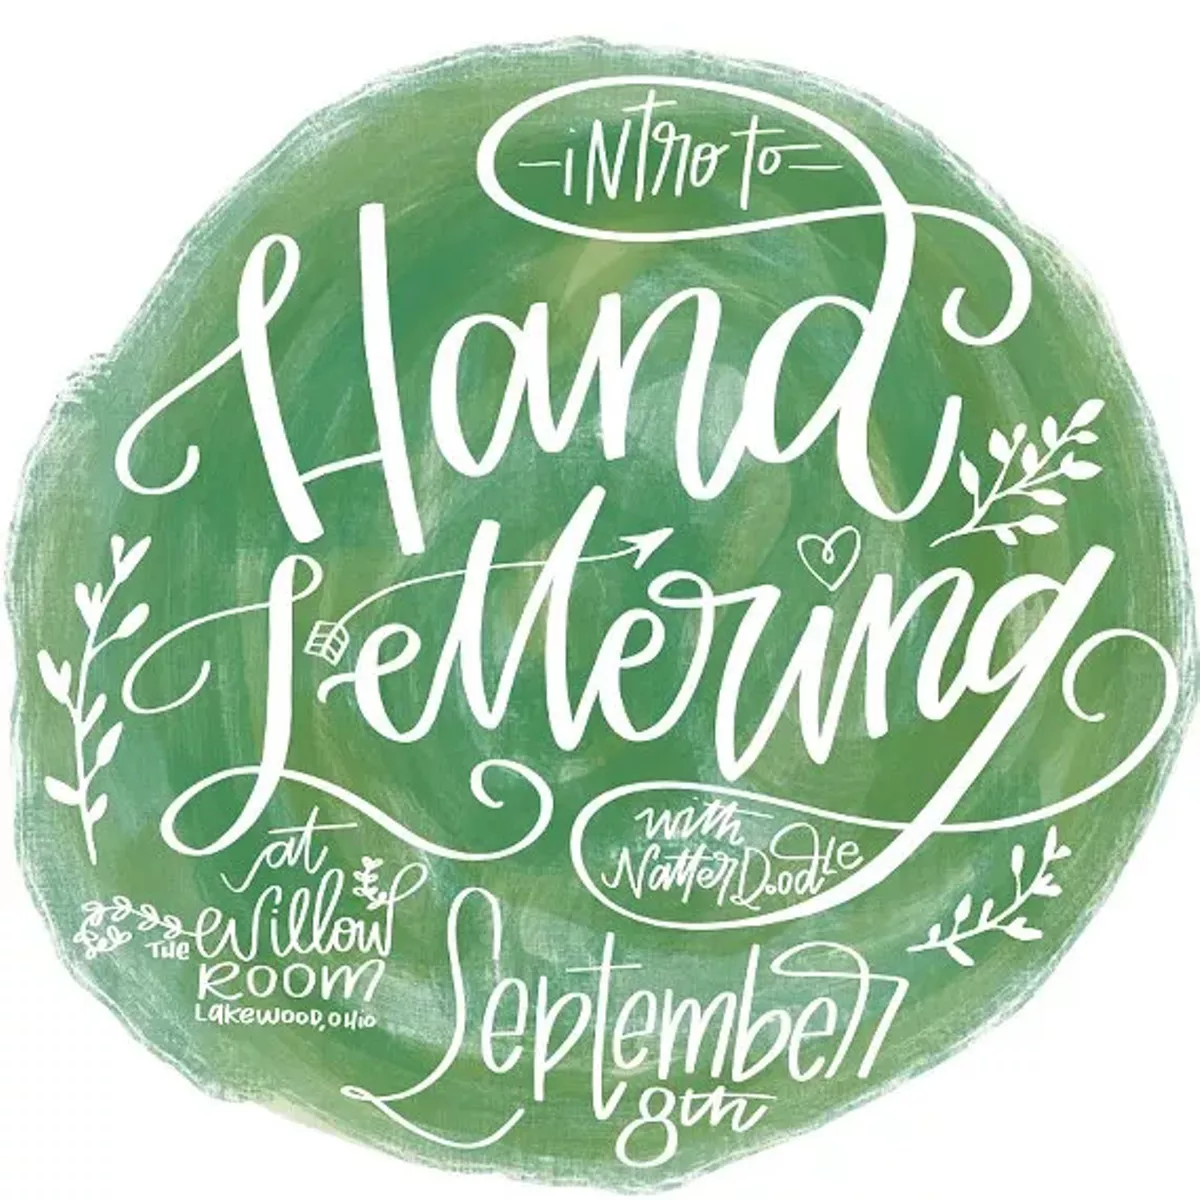 -iNtro to-
Hand
Lettering
with
NatterDoodLe
at
THE Willow
ROOM
LAkeWOOD, OHio
September
8th